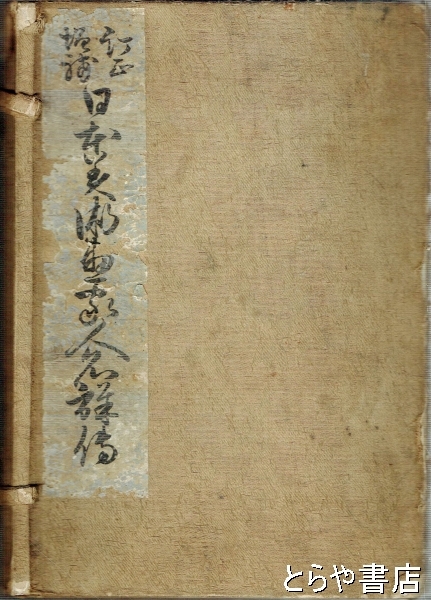 訂正
増補
日本美術画家人名詳伝
とらや書店